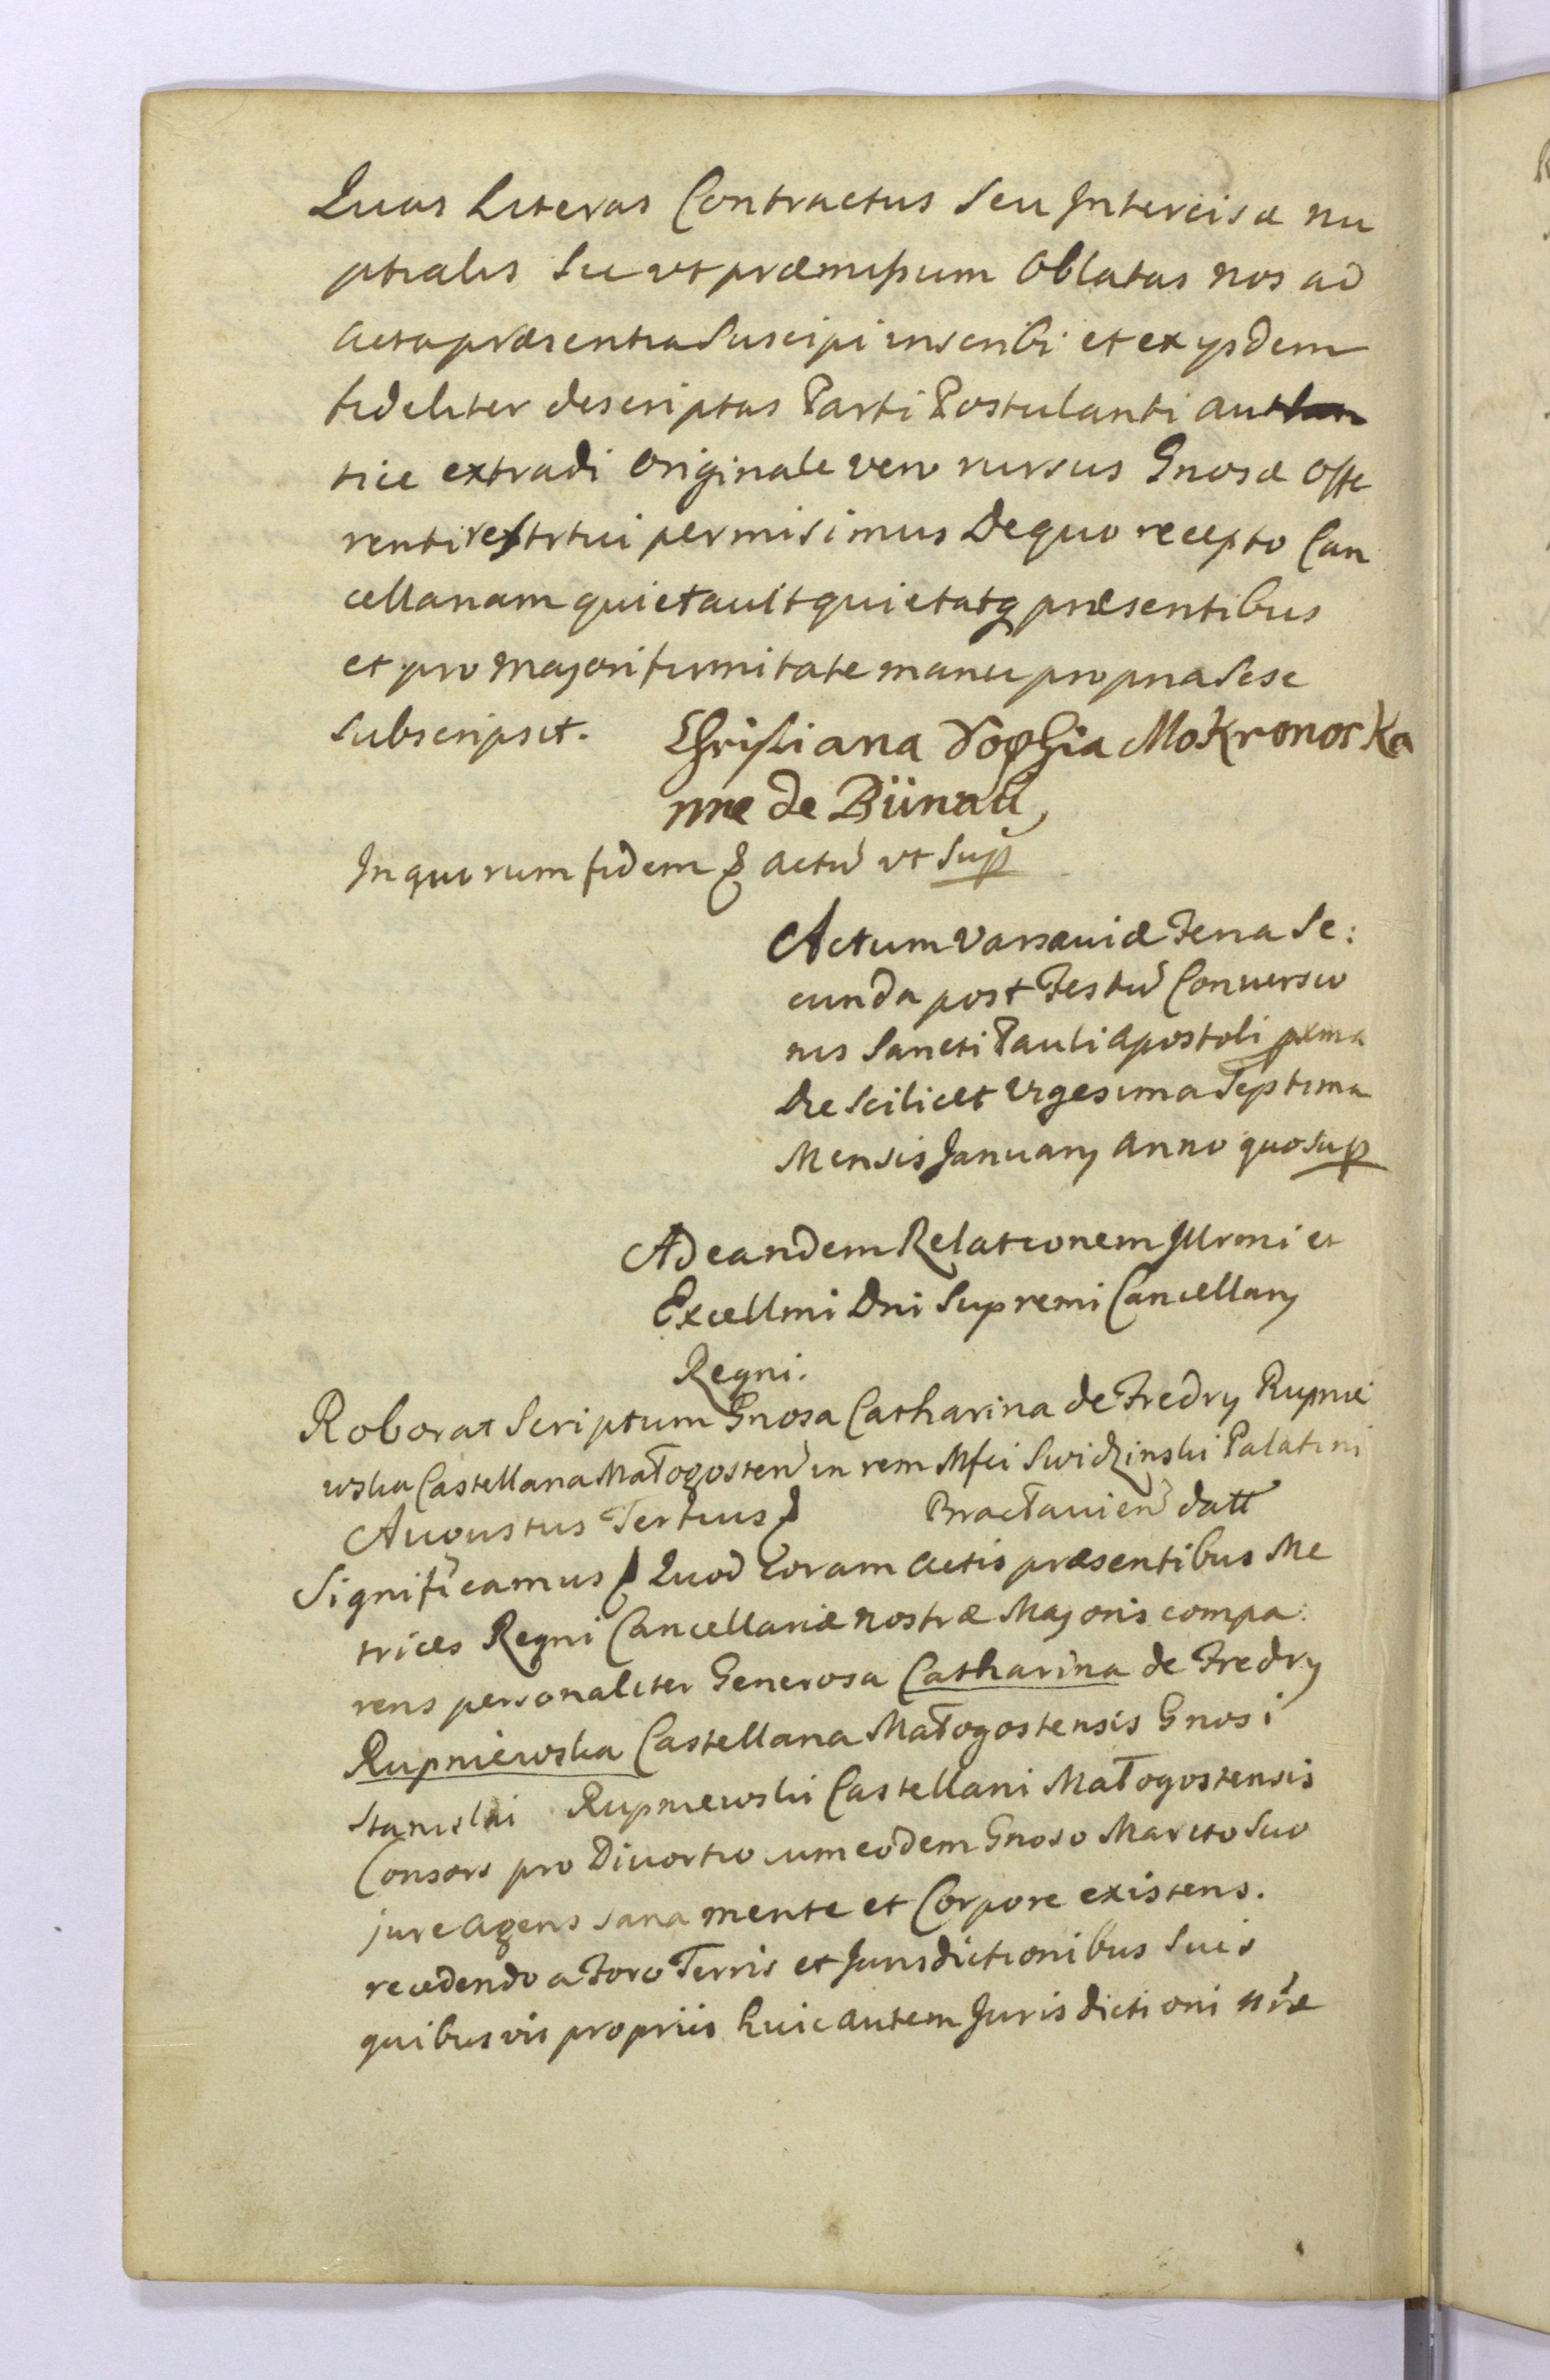 Quas Literas Contractus Seu Intercisæ nu
ptialis Sic ut præmissum Oblatas nos ad
Acta præsentia Suscipi inscribi et ex ijsdem
fideliter descriptas Parti Postulanti auten
tice extradi Originale vero rursus Gnosæ offe
renti restitui permisimus De quo recepto Can
cellariam quietauit quietatq præsentibus
et pro Majori firmitate manu propria Sese
Subscripsit. Christiana Sophia Mokronoska
nne de Bünau,
In quorum fidem & Actũ ut Sup
Actum Varsauiæ Feria Se:
cunda post Festũ Conuersio
nis Sancti Pauli Apostoli pxma
Die Scilicet Vigesima Septima
Mensis Januarij Anno quo Sup
Ad eandem Relationem Illrmi et
Excellmi Dni Supremi Cancellarij
Regni.
Roborat Scriptum Gnosa Catharina de Fredry Rupnie
wska Castellana Małogosten in rem Mfci Swidzinski Palatini
Augustus Tertius & Bracłauien datt
Significamus & Quod Coram Actis præsentibus Me
trices Regni Cancellariæ nostræ Majoris compa:
rens personaliter Generosa Catharina de Fredry
Rupniewska Castellana Małogostensis Gnosi
Stanislai Rupniewski Castellani Małogostensis
Consors pro Diuortio cum eodem Gnoso Marito Suo
jure agens sana mente et Corpore existens.
recedendo a Foro Terris et Jurisdictionibus Suis
quibusvis propriis huic autem Jurisdictioni nræ